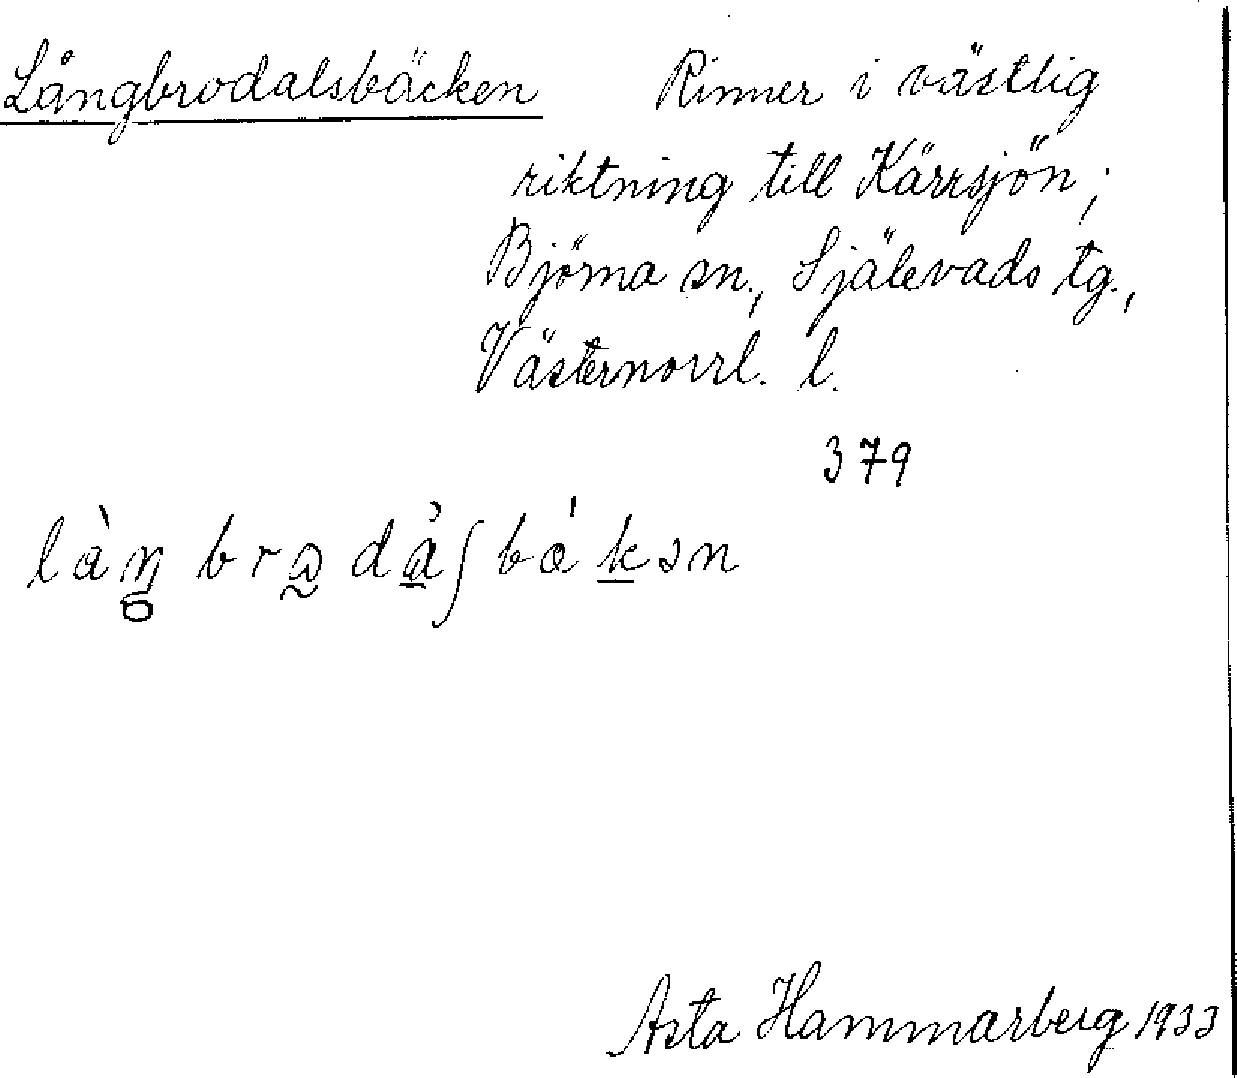 Långbrodalsbäcken Rinner i västlig
riktning till Kärrsjön;
Björna sn., Själevads tg.,
Västernorrl. l.
379
Asta Hammarberg 1933